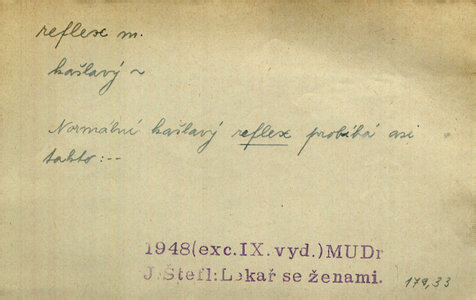 reflex m.
kašlavý ~
Normální kašlavý reflex probíhá asi
takto:--
1948(exc.IX.vyd.)MUDr
J.Štefl:Lékař se ženami.
179,33